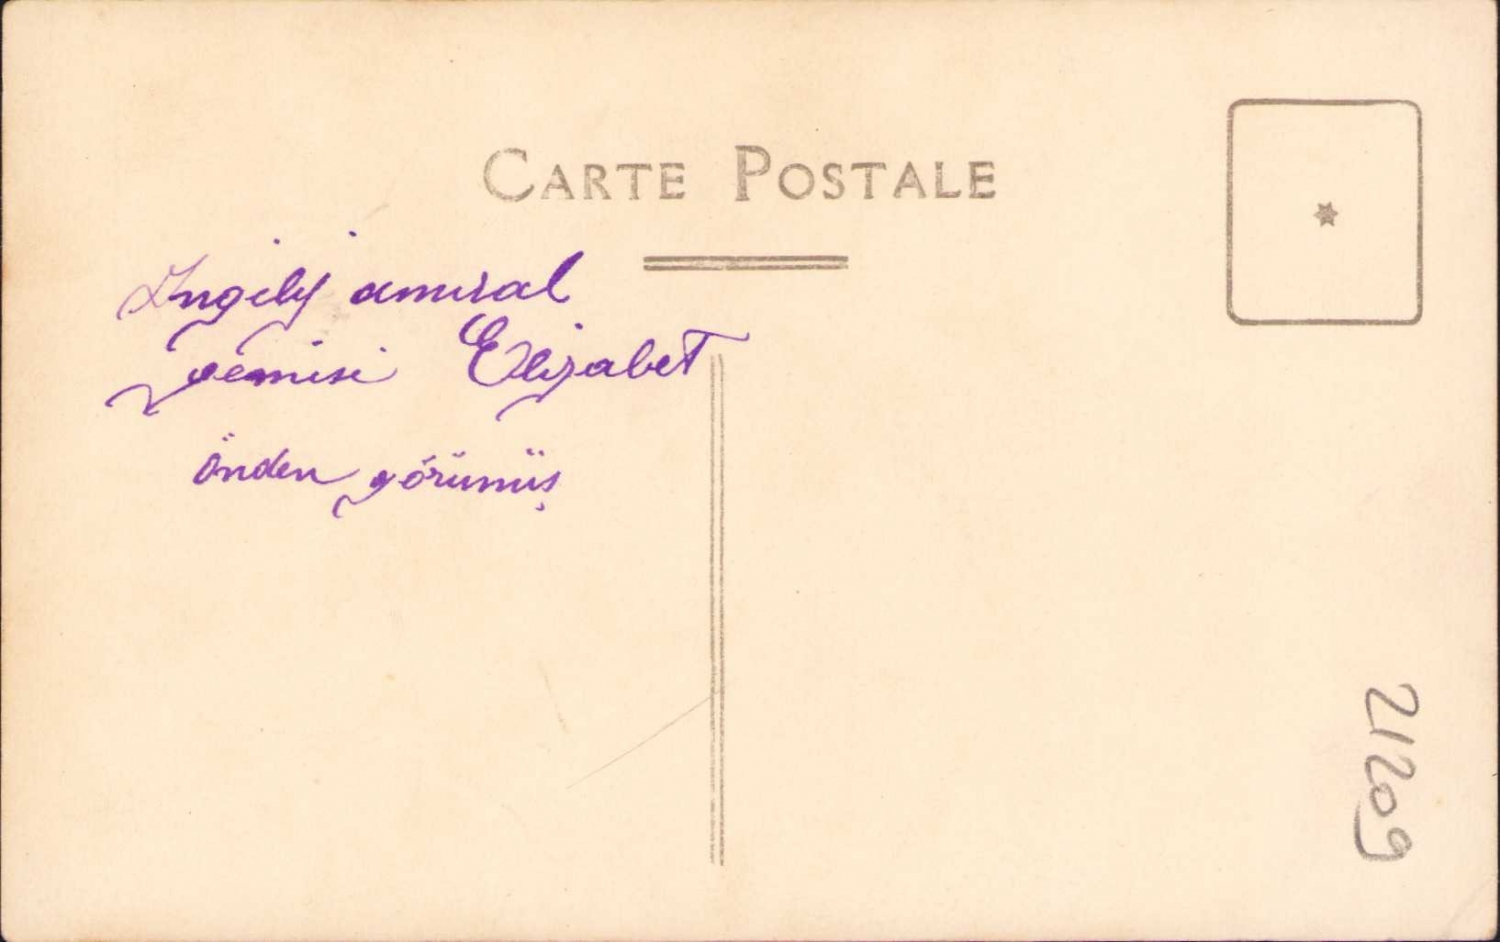 CARTE POSTALE
İngiliz amiral
gemisi Elizabet
önden görünüş
21209